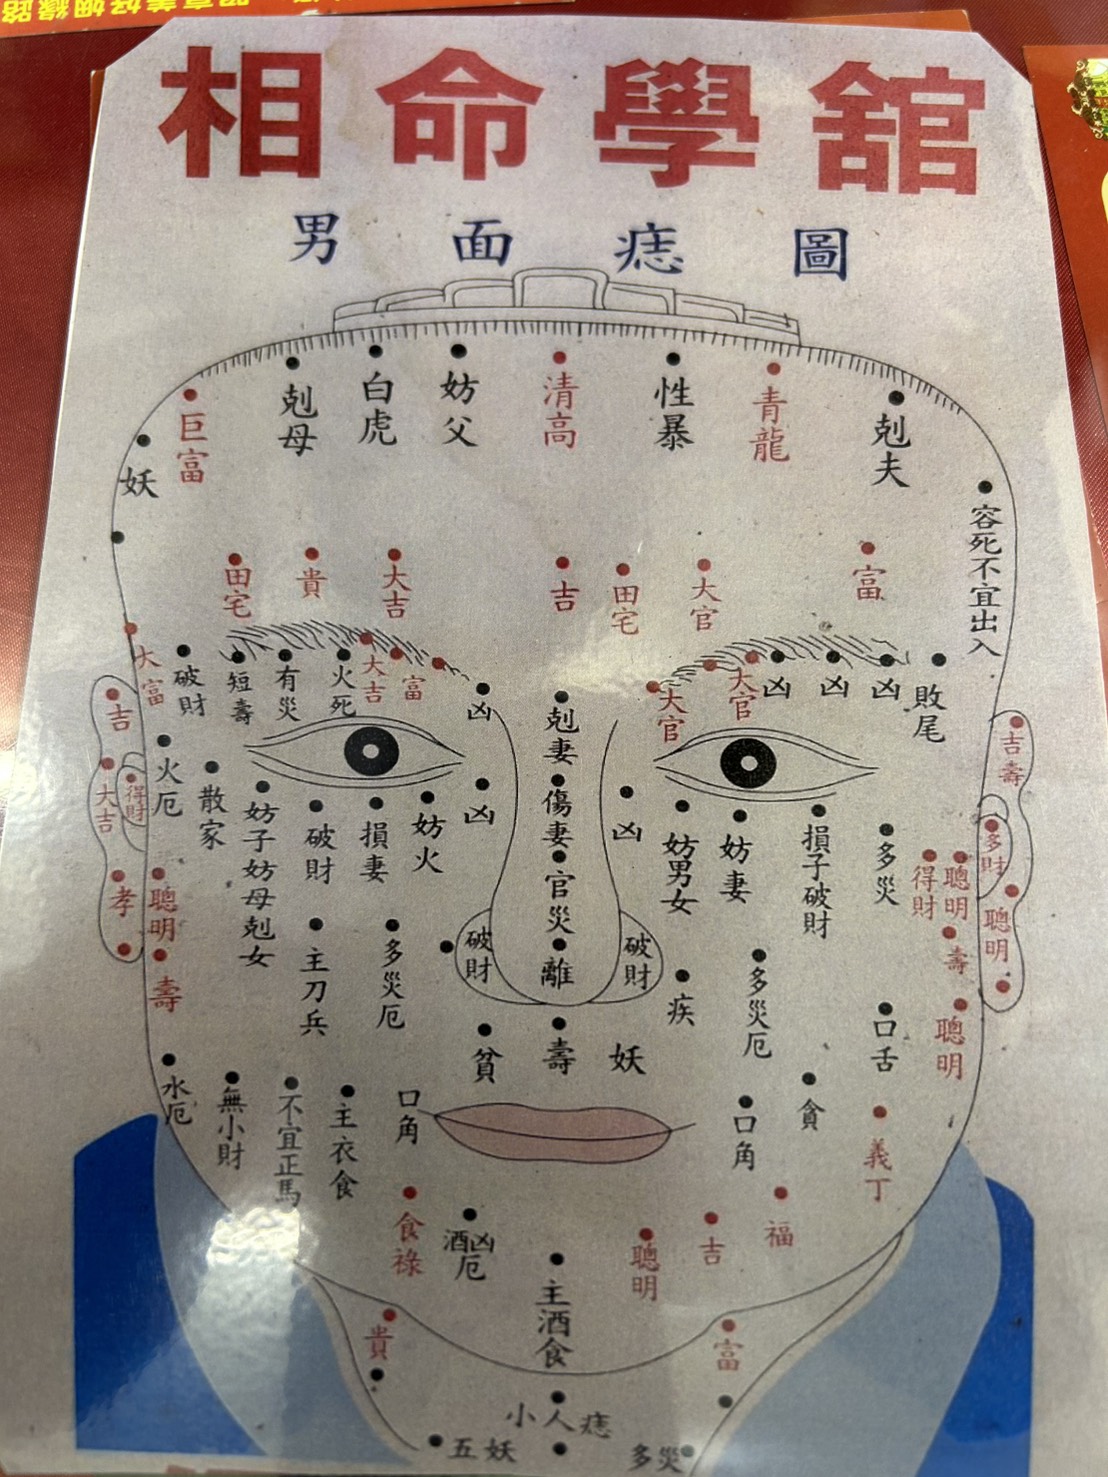 相命學舘
男面痣圖
巨富
妖
剋母
白虎
妨父
清高
性暴
青龍
剋夫
容死不宜出入
田宅
貴
大吉
吉
田宅
大官
富
大富
破財
短壽
有災
火死
大吉
富
凶
剋妻
大官
大官
凶
凶
凶
敗尾
吉
大吉
得財
火厄
散家
妨子妨母剋女
破財
損妻
妨火
凶
傷妻
凶
妨男女
妨妻
損子破財
多災
得財
聰明
多財
吉壽
孝
聰明
壽
主刀兵
多災厄
破財
官災
離
破財
疾
多災厄
口舌
壽
聰明
聰明
水厄
無小財
不宜正馬
主衣食
口角
貧
壽
妖
口角
貪
義丁
食祿
酒凶厄
主酒食
聰明
吉
福
貴
富
小人痣
五妖
多災